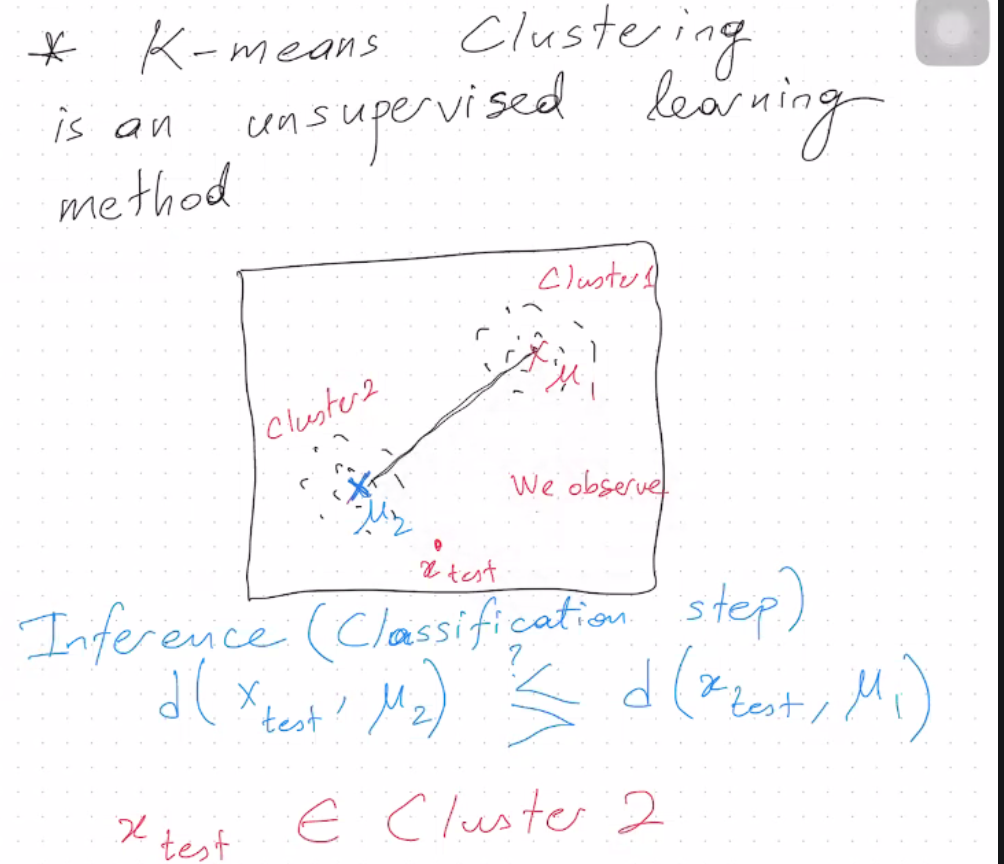 * K-means Clustering
is an unsupervised learning
method
Cluster1
μ1
Cluster2
μ2
We observe
x test
Inference (Classification step)
d(x test, μ2) ?≶ d(x test, μ1)
x test ∈ Cluster 2